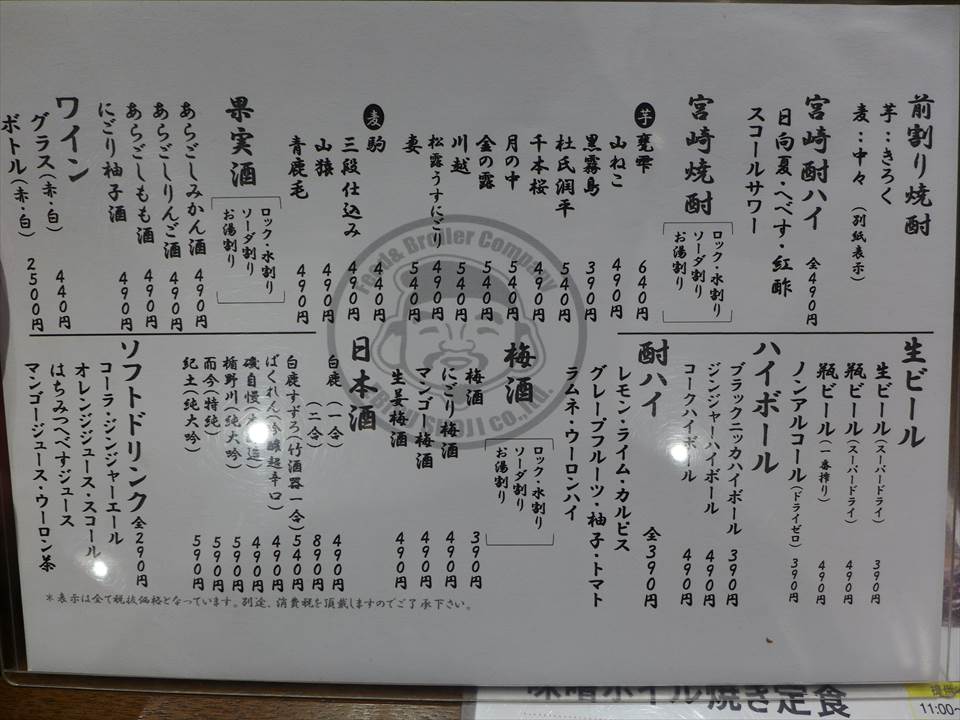 前割り焼酎
芋：きろく
麦：中々 （別紙表示）
宮崎酎ハイ 全490円
日向夏・へべす・紅酢
スコールサワー
宮崎焼酎
ロック・水割り
ソーダ割り
お湯割り
芋
甕雫 640円
山ねこ 490円
黒霧島 390円
杜氏潤平 540円
千本桜 490円
月の中 540円
金の露 540円
川越 540円
松露うすにごり 490円
妻 540円
麦
駒 440円
三段仕込み 490円
山猿 490円
青鹿毛 490円
果実酒
ロック・水割り
ソーダ割り
お湯割り
あらごしみかん酒 490円
あらごしりんご酒 490円
あらごしもも酒 490円
にごり柚子酒 490円
ワイン
グラス（赤・白） 440円
ボトル（赤・白） 2500円
生ビール
生ビール（スーパードライ） 390円
瓶ビール（スーパードライ） 490円
瓶ビール（一番搾り） 490円
ノンアルコール（ドライゼロ） 390円
ハイボール
ブラックニッカハイボール 390円
ジンジャーハイボール 490円
コークハイボール 490円
酎ハイ 全390円
レモン・ライム・カルピス
グレープフルーツ・柚子・トマト
ラムネ・ウーロンハイ
梅酒
ロック・水割り
ソーダ割り
お湯割り
梅酒 390円
にごり梅酒 490円
マンゴー梅酒 490円
生姜梅酒 490円
日本酒
白鹿 （一合） 490円
（二合） 890円
白鹿すずろ（竹酒器一合） 540円
ばくれん（吟醸超辛口） 490円
磯自慢 490円
楯野川（純大吟） 590円
而今（特純） 590円
紀土（純大吟） 590円
ソフトドリンク 全290円
コーラ・ジンジャーエール
オレンジジュース・スコール
はちみつへべすジュース
マンゴージュース・ウーロン茶
＊表示は全て税抜価格となっています。別途、消費税を頂戴しますのでご了承下さい。
Food & Broiler Company
co.,ltd.
焼き定食
11:00~